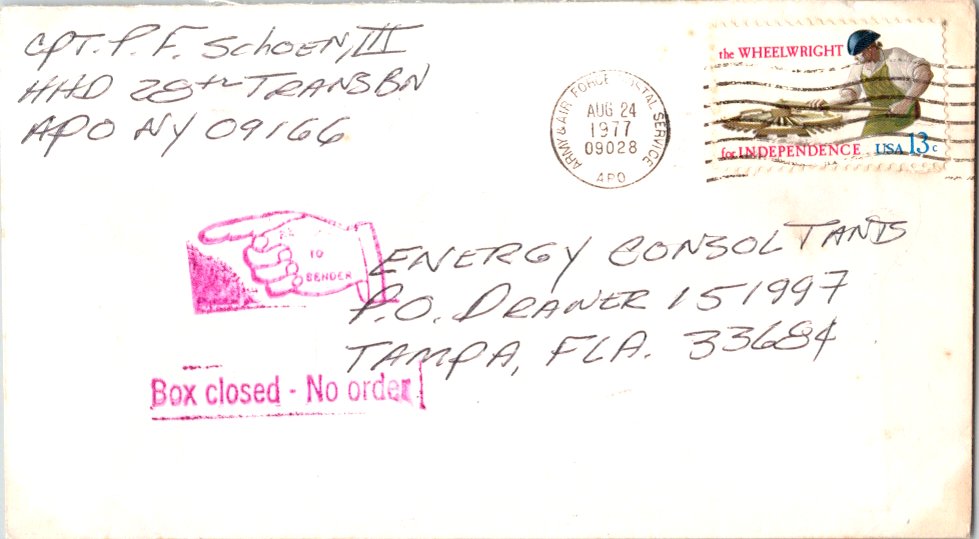 CPT. P. F. SCHOEN, III
HHD 28th TRANSBN
APO NY 09166
ARMY & AIR FORCE POSTAL SERVICE
AUG 24
1977
09028
APO
the WHEELWRIGHT
for INDEPENDENCE USA 13c
TO
SENDER
ENERGY CONSOLTANTS
P.O. DRAWER 151997
TAMPA, FLA. 33684
Box closed - No order